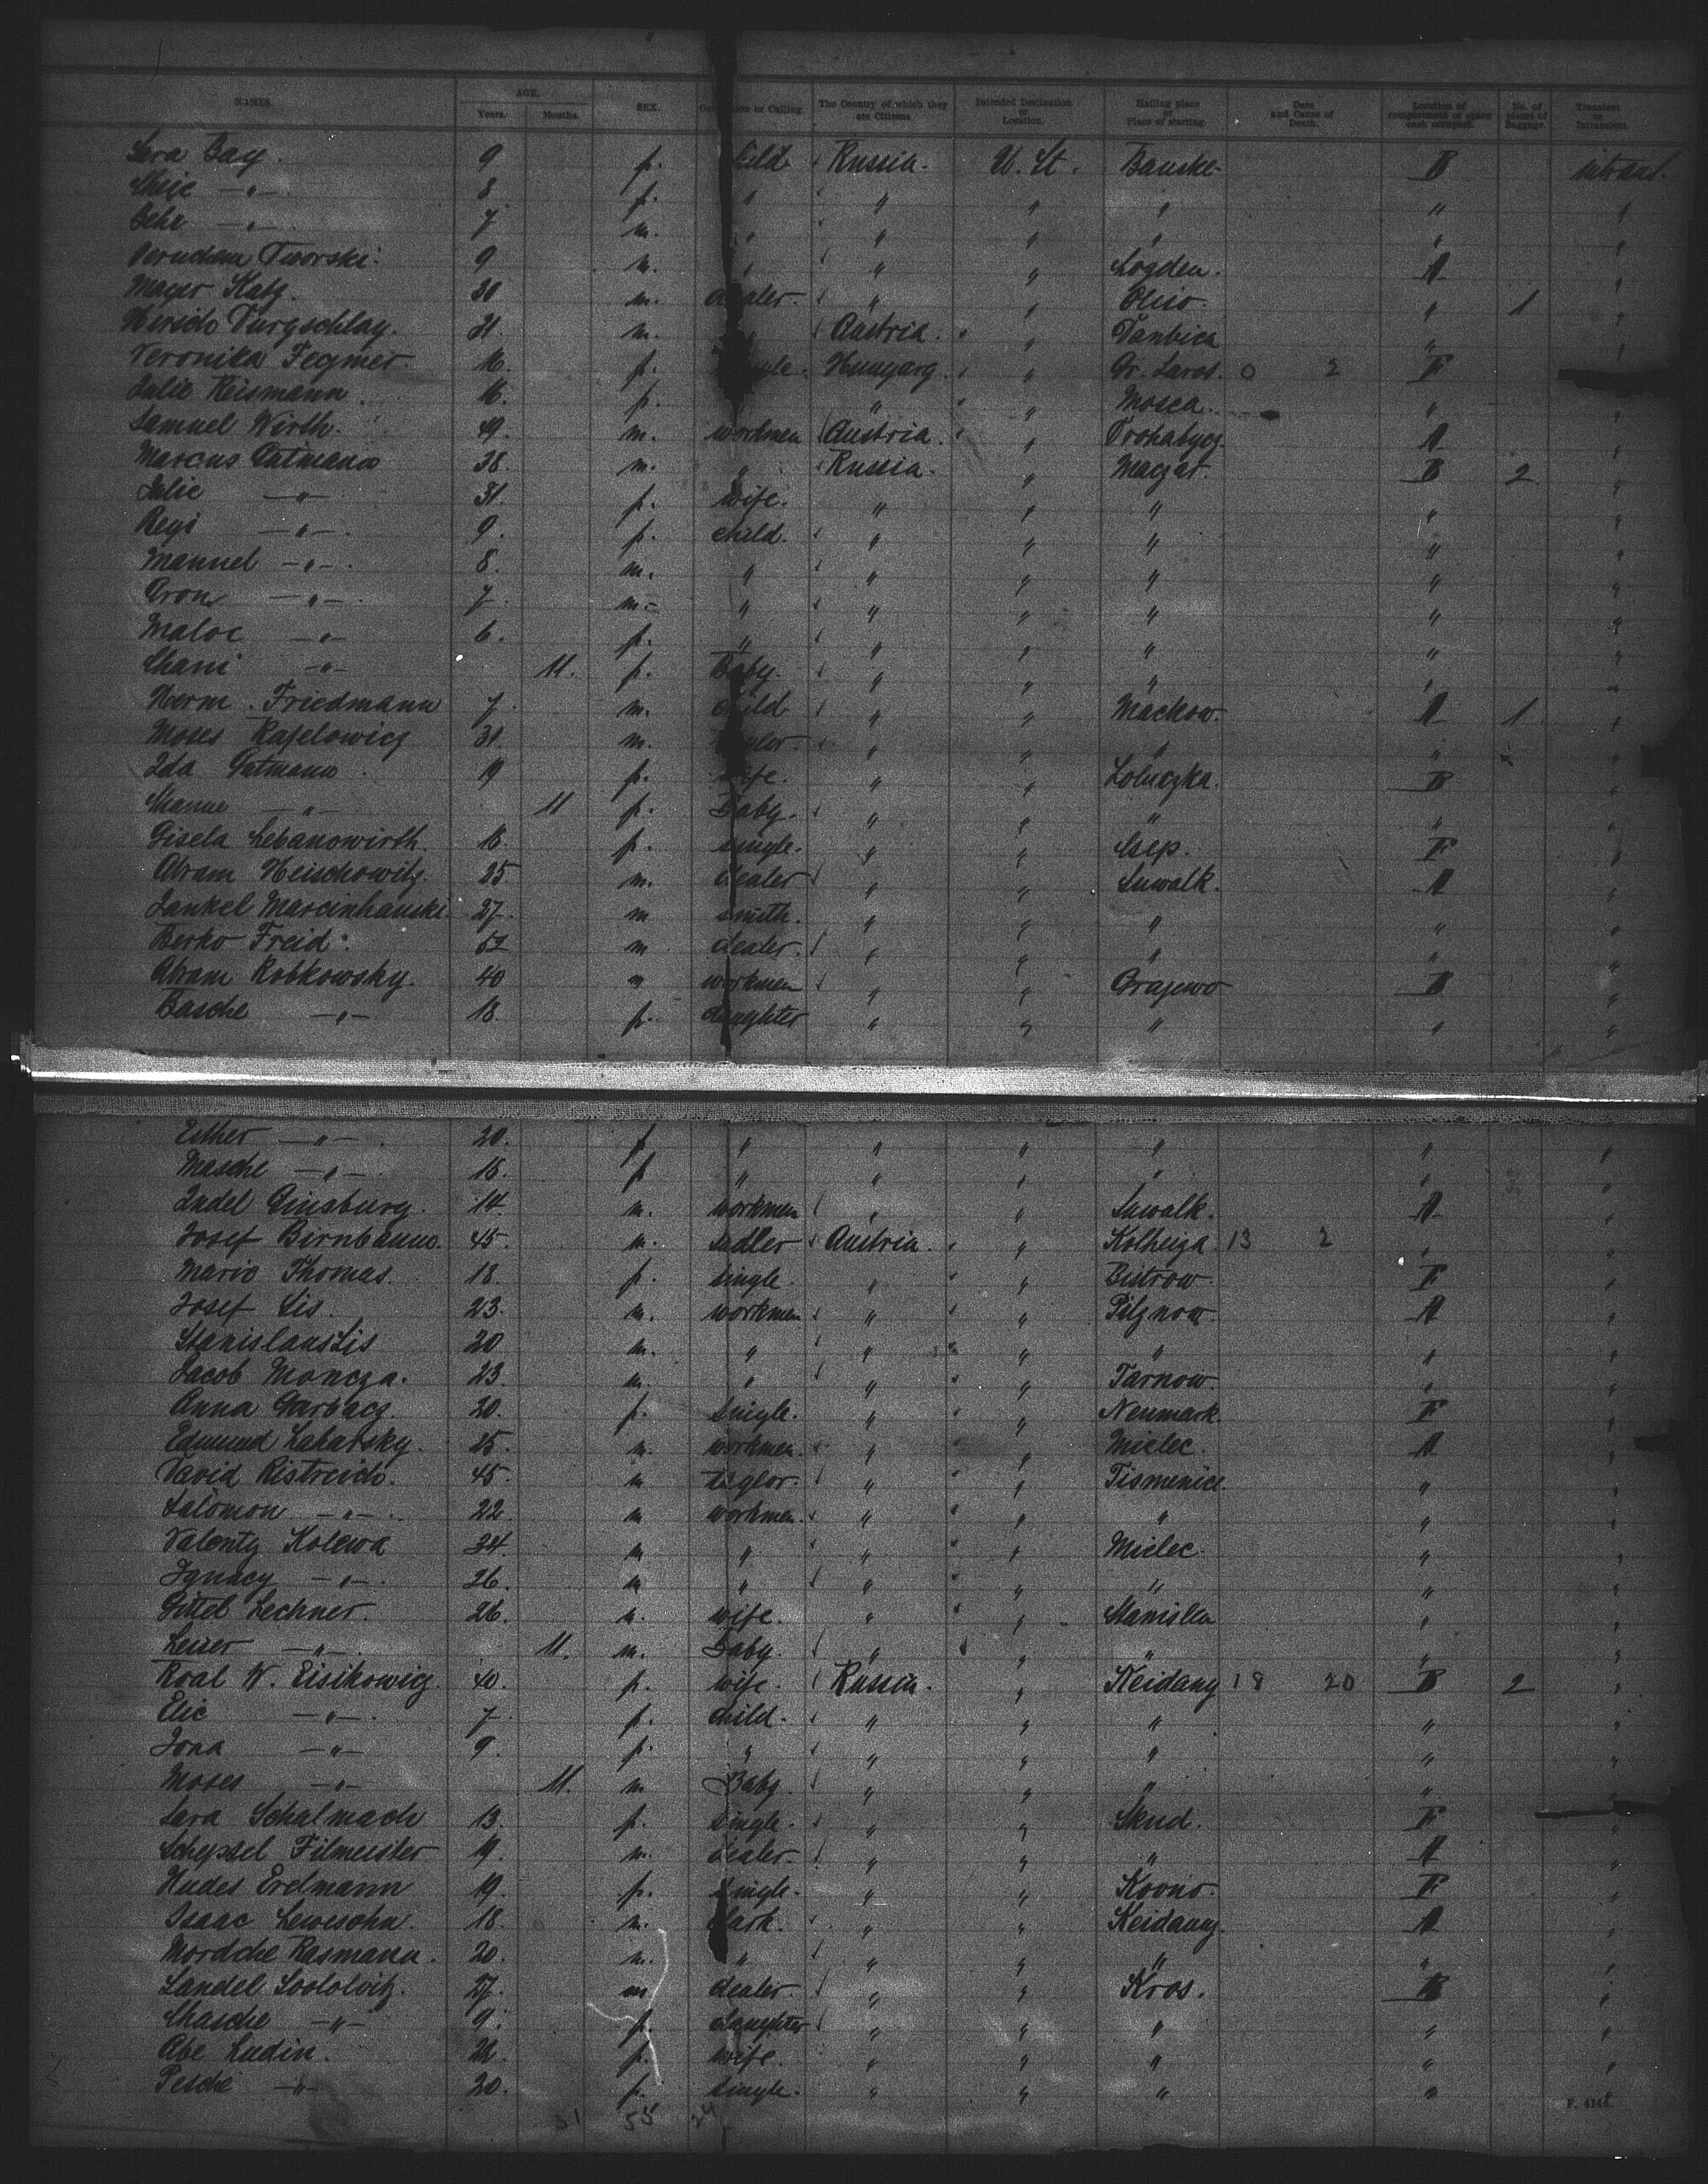 NAMES. AGE. Years. Months. SEX. Occupation or Calling. The Country of which they are Citizens Intended Destination or Location. Hailing place or Place of starting Date and Cause of Death. Location of compartment or space each occupied. No. of pieces of Baggage. Transient or Intransient.
Sara Bay. 9 f. child Russia. U. St. Bauske B intrans.
—"— 8. f. " " " " " "
Behr —"— 7 m. " " " " " "
Tworski 9 m. " " " Logden. A "
Mayer Katz. 31 m. dealer. " " Ohio. " 1 "
Hersch Turgschlag. 21. m. " Austria. " Tanbica " "
Veronika Fegmer. 16. f. single. Hungarg. " Gr. Saros. 0 2 F
Julie Reismann. 16. f. " " " Mosca. " "
Samuel Wirth. 49. m. workmen Austria. " Trohabycz. A "
Marcus Gutmann 38. m. " Russia. " Magjar. B 2 "
Julie —"— 31. f. wife. " " " " "
Regi —"— 9. f. child. " " " " "
Mannel —"— 8. m. " " " " " "
Aron —"— 7. m. " " " " " "
Maloc —"— 6. f. " " " " " "
Chani —"— 11. f. Baby. " " " " "
Herm. Friedmann 7 m. child " " Mackow. A 1 "
Moses Rafelowicz 31. m. taylor. " " " " "
Ida Gutmann 19 f. wife. " " Lolnczka. B "
Manne —"— 11 f. Baby. " " " " "
Gisela Lebanowirth. 18. f. single. " " Csep. F "
Abram Heischowitz 25 m. dealer " " Suwalk. A "
Jankel Marcinhauski 27. m smith. " " " " "
Berko Freid. 52 m dealer. " " " " "
Abram Kobkowsky. 40 m workmen " " Grajewo B "
Basche —"— 18. f. daughter " " " " "
Esther —"— 20. f " " " " " "
Masche —"— 16. f " " " " " "
Judel Ginsburg. 14. m. workmen " " Suwalk. A "
Josef Birnbaum. 45. m. sadler Austria. " Kolheiza 13 2 " "
Marie Thomas. 18. f. single. " " Bistrow. F "
Josef Lis. 23. m. workmen " " Pilznow. A "
Stanislaus Lis 20 m. " " " " " "
Jacob Moncza. 23. m. " " " Tarnow. " "
Anna Garbacz. 20. f. single. " " Neumark. F "
Edmund Labarsky. 25. m. workmen. " " Mielec. A "
David Ristreich. 45. m taylor. " " Tismenice. " "
Salomon —"— 22. m workmen. " " " " "
Valenty Kolewa 34. m " " " Mielec. " "
Ignacy —"— 26. m " " " " " "
Gittel Lechner. 26. m. wife. " " Stanislau " "
Leiser —"— 11. m. Baby. " " " " "
Roal W. Eisikowicz. 40. f. wife. Russia. " Keidany 18 20 B 2 "
Elie —"— 7. f. child. " " " " "
Jona —"— 9. f. " " " " " "
Moses —"— 11. m Baby. " " " " "
Sara Schalmach 13. f. single. " " Skud. F "
Schepsel Filmeister 19. m. dealer. " " " A "
Hudes Erelmann 19. f. single. " " Kovno. F "
Isaac Lewesohn. 18. m. clark. " " Keidany. A "
Mordche Rasmann. 20. m. " " " " " "
Sandel Soololvitz. 27. m dealer. " " Kros. B "
Chasche —"— 9. f. daughter " " " " "
Abe Ludin. 22. f. wife. " " " " "
Pesche —"— 20. f. single. " " " " "
31 55 24
F. 4145.